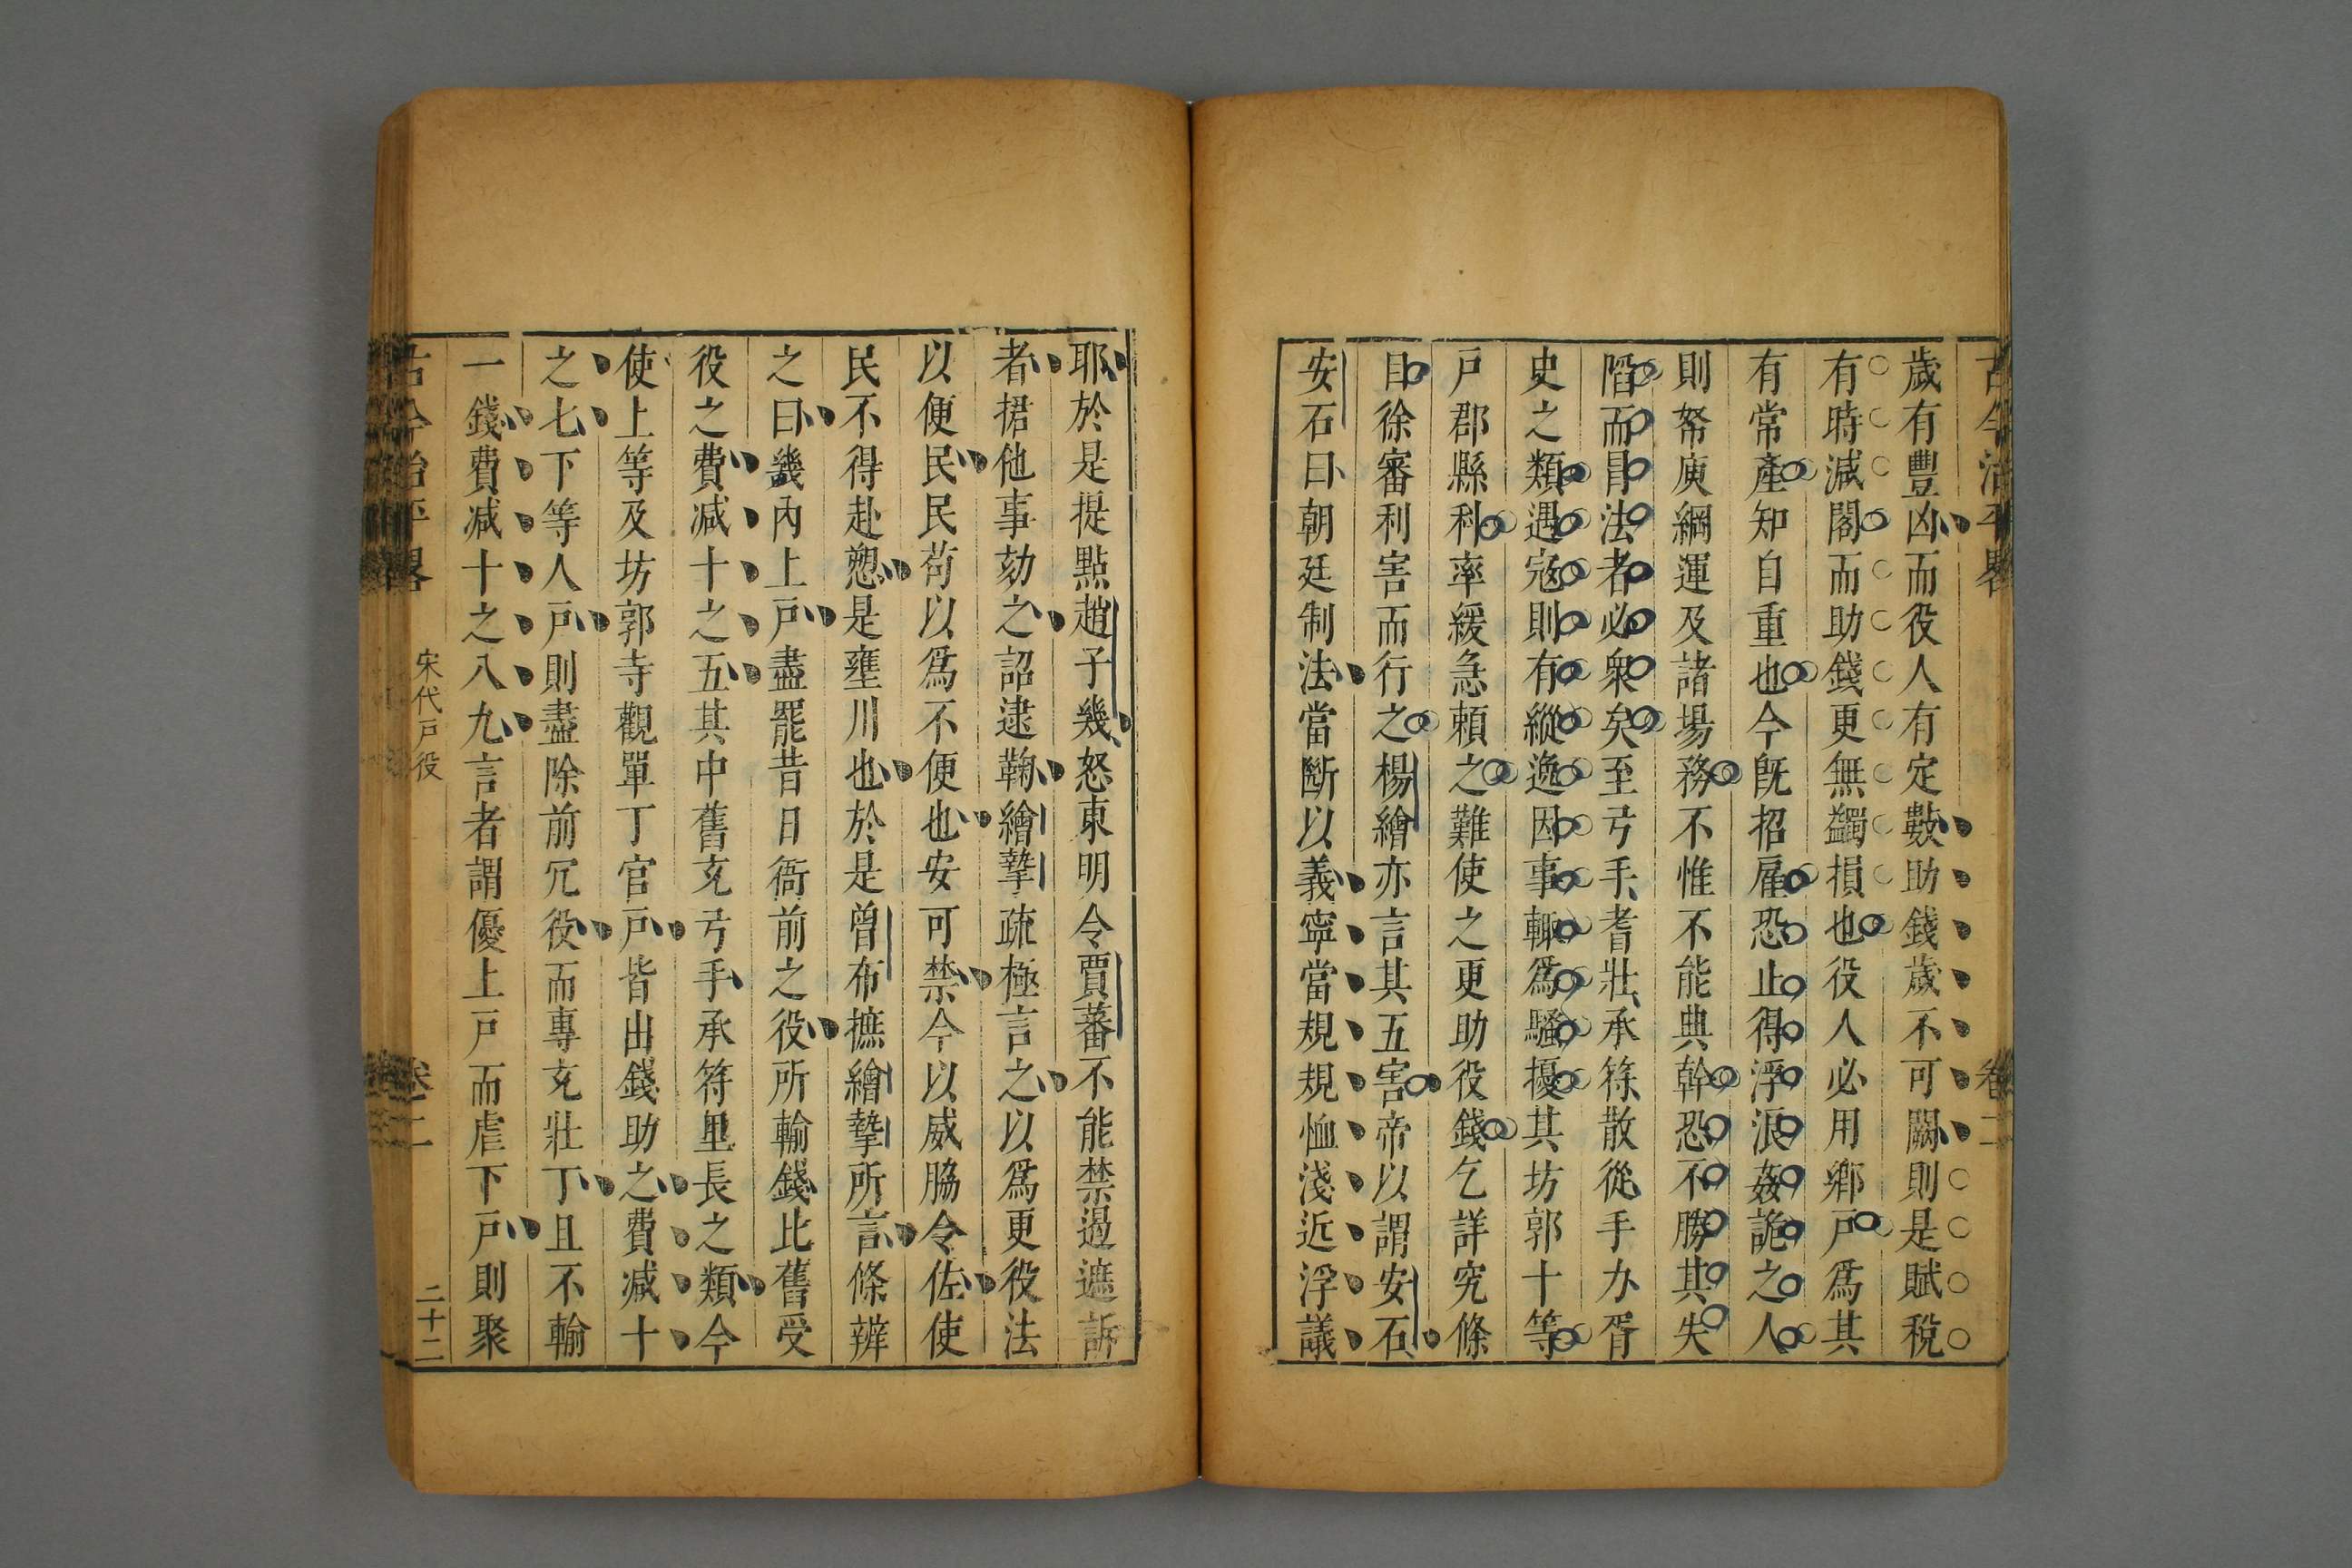 古今治平畧 卷二
歲有豐凶而役人有定數助錢歲不可闕則是賦稅
有時減閣而助錢更無蠲損也役人必用鄉戶爲其
有常產知自重也今旣招雇恐止得浮浪姦詭之人
則帑庾綱運及諸場務不惟不能典幹恐不勝其失
陷而冐法者必衆矣至弓手耆壯承符散從手力胥
史之類遇宼則有縱逸因事輒爲騷擾其坊郭十等
戶郡縣科率緩急頼之難使之更助役錢乞詳究條
目徐審利害而行之楊繪亦言其五害帝以謂安石
安石曰朝廷制法當斷以義寧當規規恤淺近浮議
耶於是提點趙子幾怒東明令賈蕃不能禁遏遮訴
者捃他事劾之詔逮鞫繪摯疏極言之以爲更役法
以便民民苟以爲不便也安可禁今以威脇令佐使
民不得赴愬是壅川也於是曾布摭繪摯所言條辨
之曰畿內上戶盡罷昔日衙前之役所輸錢比舊受
役之費减十之五其中舊充弓手承符里長之類今
使上等及坊郭寺觀單丁官戶皆出錢助之費减十
之七下等人戶則盡除前冗役而專充壯丁且不輸
一錢費减十之八九言者謂優上戶而虐下戶則聚
古今治平畧 宋代戸役 卷二 二十二